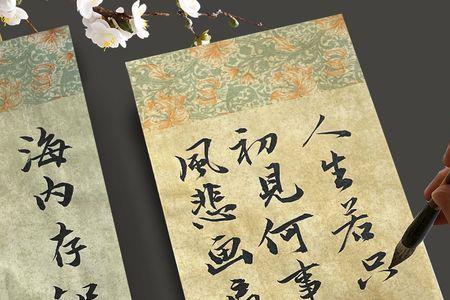 人生若只
初見何事
風悲画
海内存